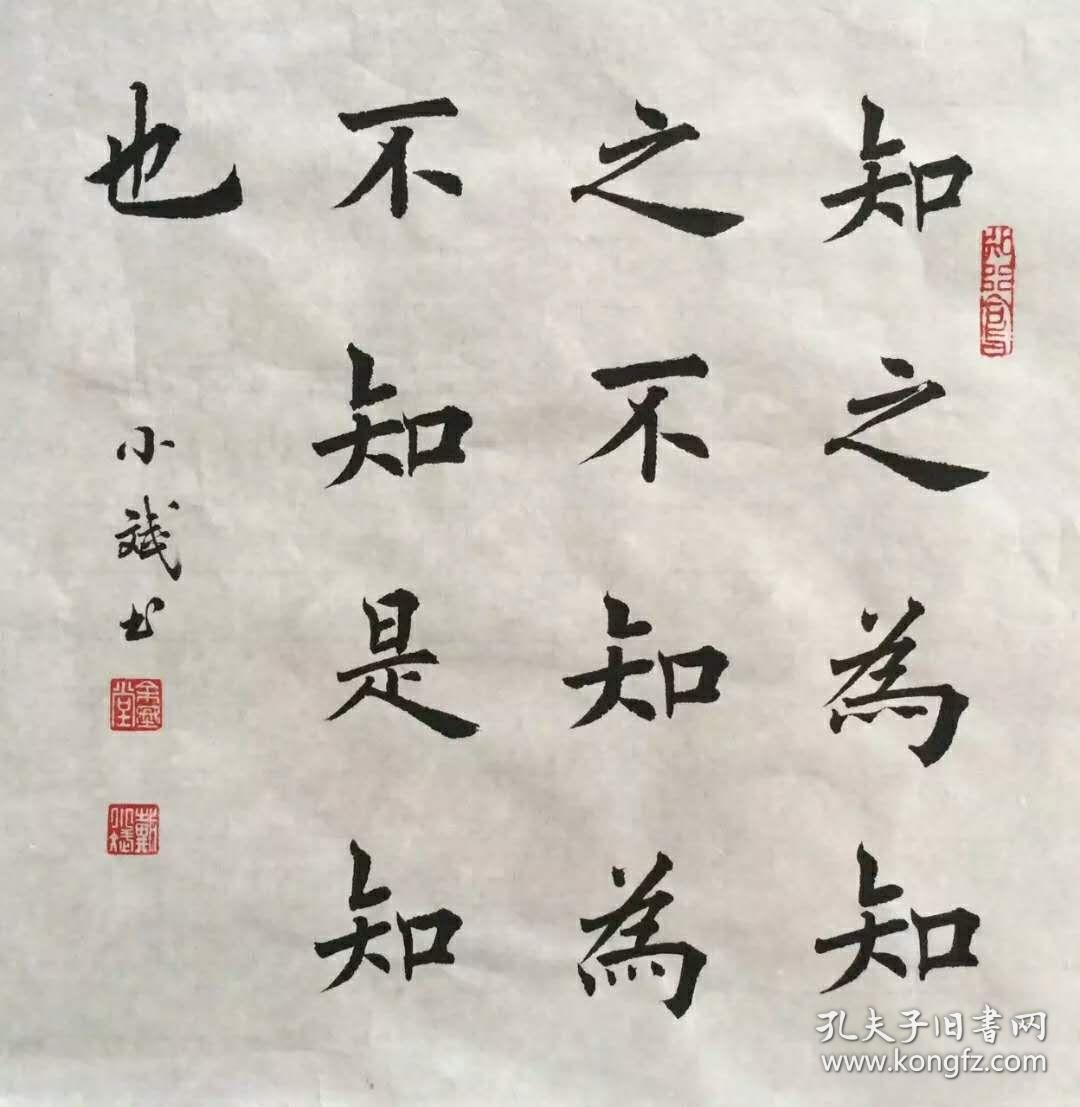 知之為知
之不知為
不知是知
也
小斌书
戴小斌
孔夫子旧書网
www.kongfz.com